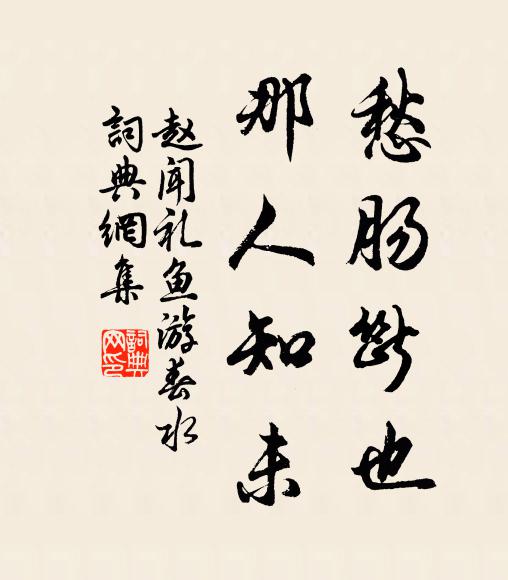 愁肠断也
那人知未
赵闻礼鱼游春水
詞典網集
詞典网印